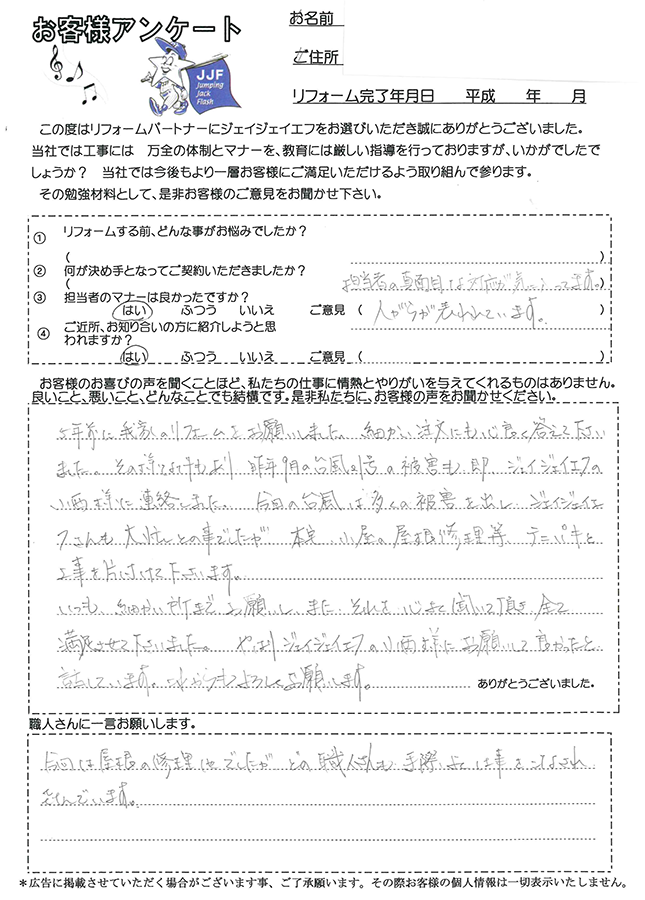 お客様アンケート
JJF
Jumping
Jack
Flash
お名前
ご住所
リフォーム完了年月日　平成　年　月
この度はリフォームパートナーにジェイジェイエフをお選びいただき誠にありがとうございました。
当社では工事には　万全の体制とマナーを、教育には厳しい指導を行っておりますが、いかがでしたで
しょうか？　当社では今後もより一層お客様にご満足いただけるよう取り組んで参ります。
その勉強材料として、是非お客様のご意見をお聞かせ下さい。
① リフォームする前、どんな事がお悩みでしたか？
(　)
② 何が決め手となってご契約いただきましたか？
( 担当者の真面目な対応が気に入ってます。)
③ 担当者のマナーは良かったですか？
はい　ふつう　いいえ　ご意見 ( 人がらが表われています。 )
④ ご近所、お知り合いの方に紹介しようと思
われますか？
はい　ふつう　いいえ　ご意見 (　)
お客様のお喜びの声を聞くことほど、私たちの仕事に情熱とやりがいを与えてくれるものはありません。
良いこと、悪いこと、どんなことでも結構です。是非私たちに、お客様の声をお聞かせください。
年前に我家のリフォームをお願いしました。細かい注文にも心良く答えて下さい
ました。その様な事もあり 昨年9月の台風21号の被害も 即 ジェイジェイエフの
小西様に連絡しました。今回の台風は多くの被害を出し ジェイジェイエ
フさんも 大忙しとの事でしたが 本宅 小屋の屋根修理等 テキパキと
工事を片付けて下さいます。
いつも 細かい所まで お願いし また それを心よく聞いて頂き 全て
満足させて下さいました。やはりジェイジェイエフの小西様にお願いして良かったと
話しています。これからもよろしくお願いします。
ありがとうございました。
職人さんに一言お願いします。
今回は屋根の修理 でしたが どの職人さんも 手際よく仕事をこなされ
喜んでいます。
＊広告に掲載させていただく場合がございます事、ご了承願います。その際お客様の個人情報は一切表示いたしません。